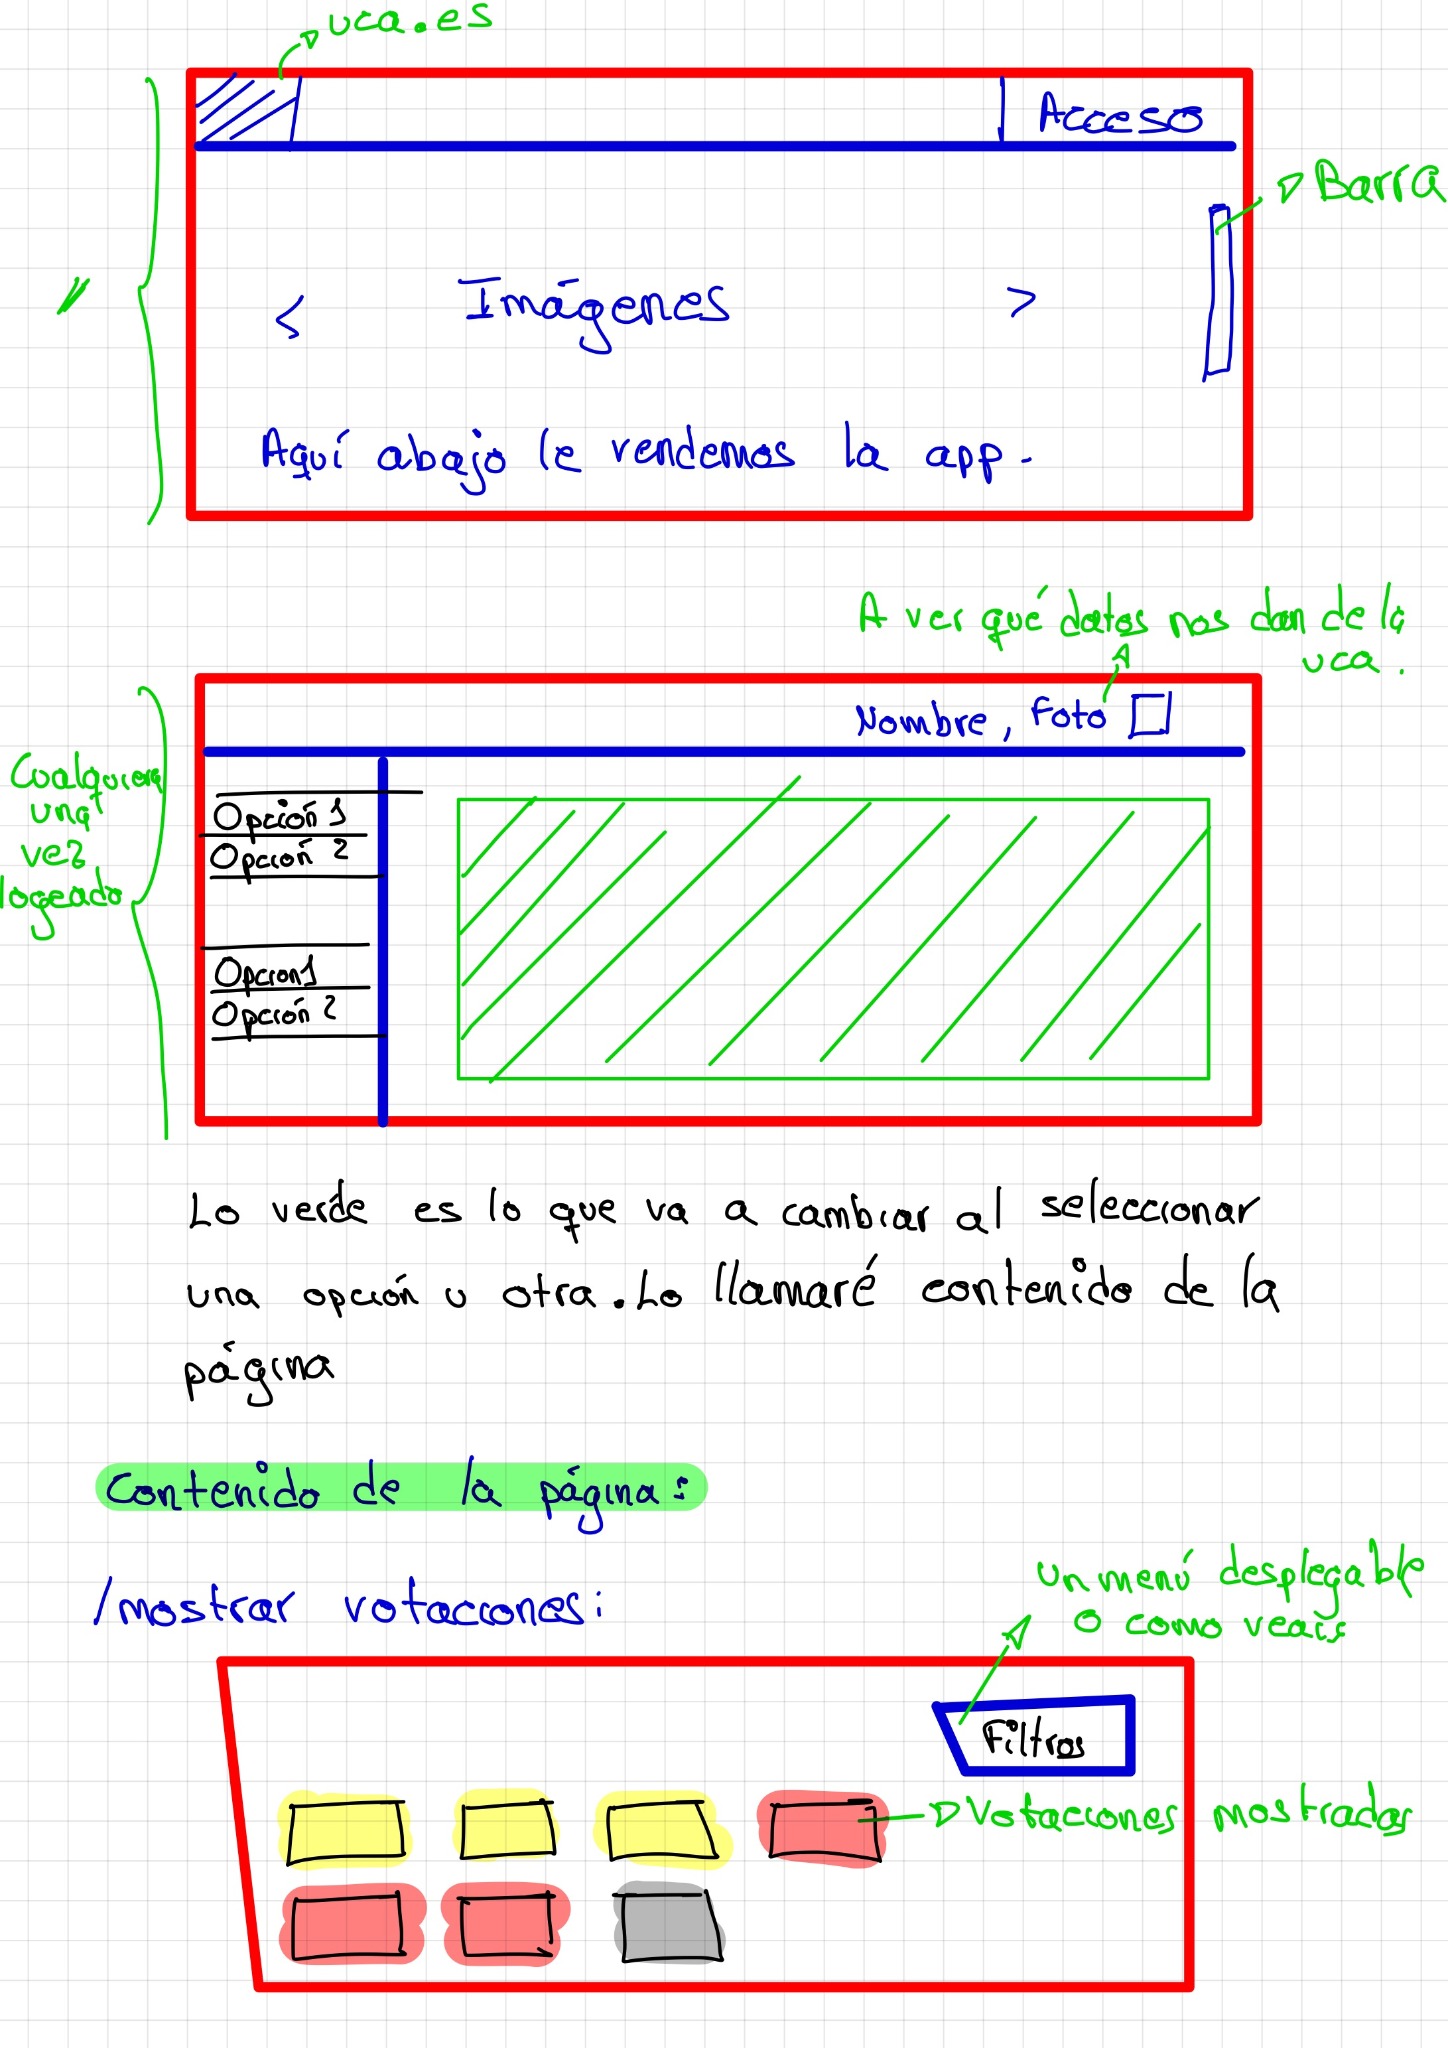 uca.es
Acceso
Barra
//
< Imágenes >
Aquí abajo le vendemos la app.
A ver qué datos nos dan de la
uca.
Nombre, Foto
Cualquiera
una
vez
logeado
Opción 1
Opción 2
Opcion 1
Opción 2
Lo verde es lo que va a cambiar al seleccionar
una opción u otra. Lo llamaré contenido de la
página
Contenido de la página:
/mostrar votaciones:
Un menú desplegable
o como veais
Filtros
Votaciones mostradas